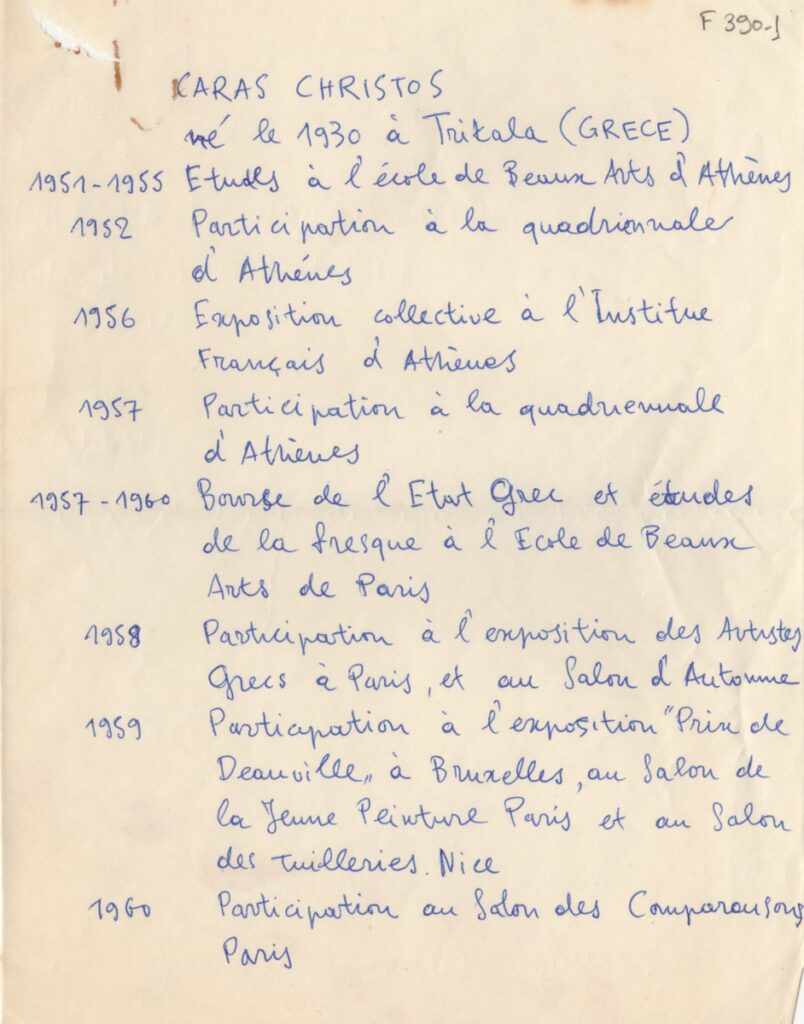 F 390-1
CARAS CHRISTOS
né le 1930 à Trikala (GRECE)
1951-1955 Etudes à l'école de Beaux Arts d'Athènes
1952 Participation à la quadriennale
d'Athénes
1956 Exposition collective à l'Institue
Français d'Athènes
1957 Participation à la quadriennale
d'Athènes
1957-1960 Bourse de l'Etat Grec et études
de la fresque à l'Ecole de Beaux
Arts de Paris
1958 Participation à l'exposition des Artistes
Grecs à Paris, et au Salon d'Automne
1959 Participation à l'exposition "Prix de
Deauville„ à Bruxelles, au Salon de
la Jeune Peinture Paris et au Salon
des Tuilleries. Nice
1960 Participation au Salon des Comparaisons
Paris